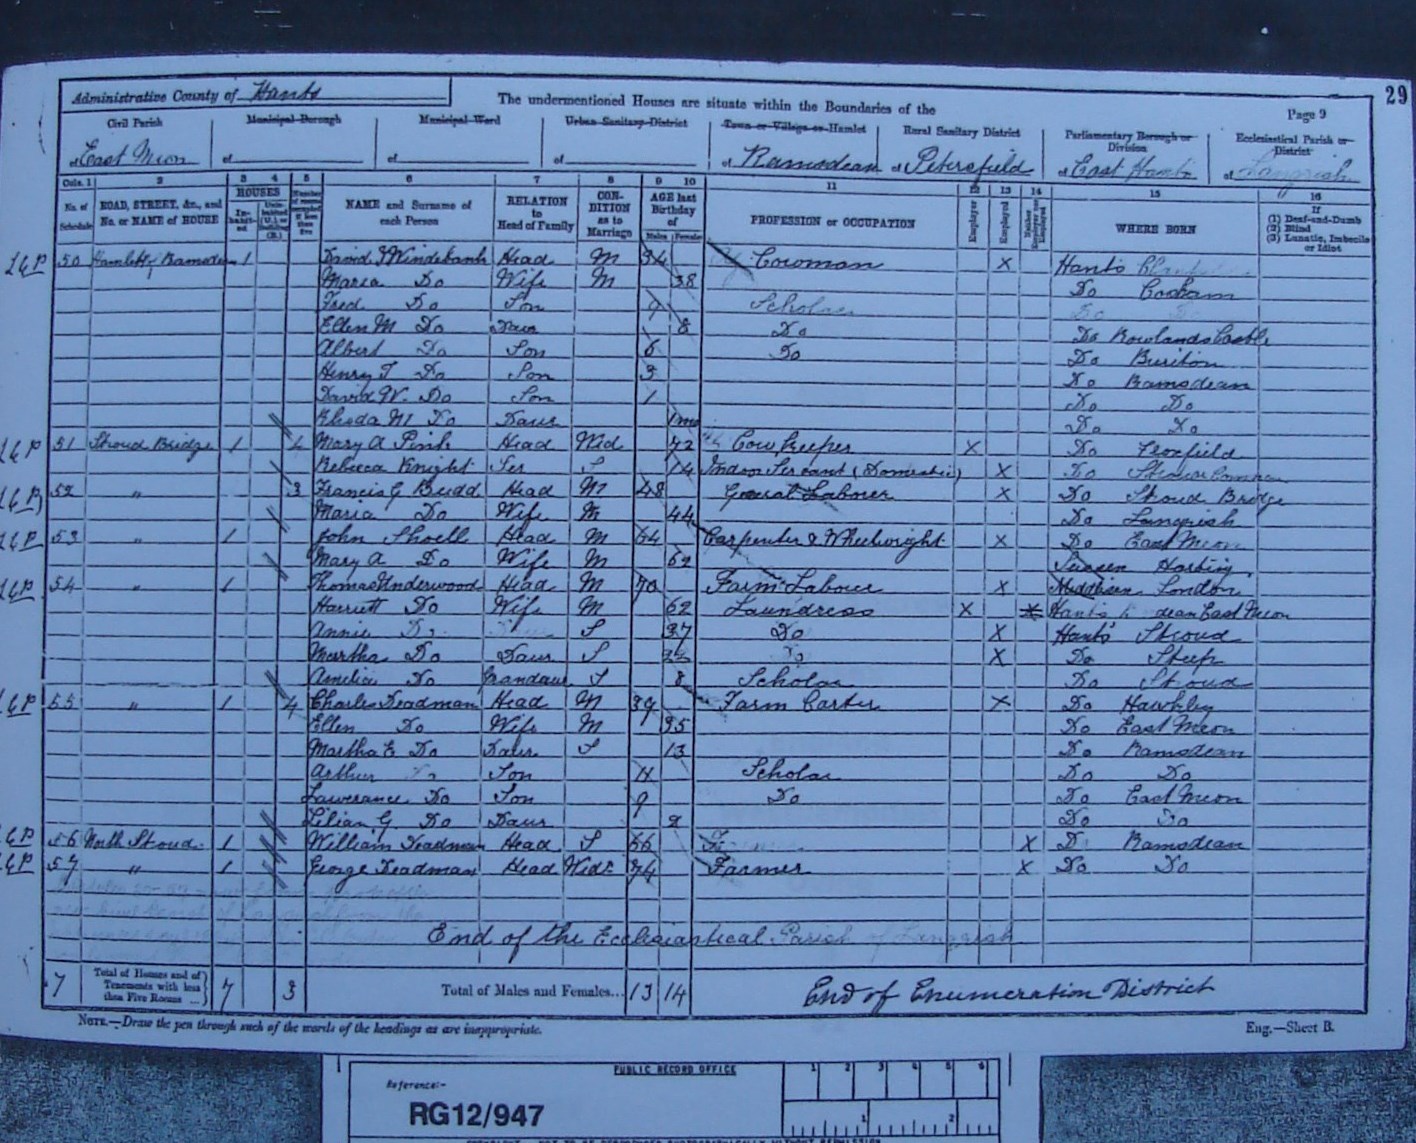 29
Administrative County of Hants
The undermentioned Houses are situate within the Boundaries of the
Page 9
Civil Parish
Municipal Borough
Municipal Ward
Urban Sanitary District
Town or Village or Hamlet
Rural Sanitary District
Parliamentary Borough or Division
Ecclesiastical Parish or District
of East Meon
of
of
of
of Ramsdean
of Petersfield
of East Hants
of Langrish
Cols. 1 2 3 4 5 6 7 8 9 10 11 12 13 14 15 16
No. of Schedule
ROAD, STREET, &c., and No. or NAME of HOUSE
HOUSES
Inhabited
Uninhabited (U.) or Building (B.)
Number of rooms occupied if less than five
NAME and Surname of each Person
RELATION to Head of Family
CONDITION as to Marriage
AGE last Birthday of
Males Females
PROFESSION or OCCUPATION
Employer
Employed
Neither Employer nor Employed
WHERE BORN
If
(1) Deaf-and-Dumb
(2) Blind
(3) Lunatic, Imbecile or Idiot
L&P 50 Ramsdean 1 David Windebank Head M 34 Cowman X Hants
Maria Do Wife M 38 Do
Fred Do Son 9 Scholar Do Do
Ellen M Do Daur 8 Do Do Rowlands Castle
Albert Do Son 6 Do Do Buriton
Henry T Do Son 3 Do Ramsdean
David W. Do Son 1 Do Do
Rhoda M Do Daur 1 mo Do Do
L&P 51 Stroud Bridge 1 4 Mary A Pink Head Wid 72 Cow Keeper X Do Froxfield
Rebecca Knight Ser S 14 Indoor Servant (Domestic) X Do Stroud Common
L&P 52 " 3 Francis G Budd Head M 48 General Labourer X Do Stroud Bridge
Maria Do Wife M 44 Do Langrish
L&P 53 " 1 John Shoell Head M 64 Carpenter & Wheelwright X Do East Meon
Mary A Do Wife M 62 Sussex Harting
L&P 54 " 1 Thomas Underwood Head M 70 Farm Labour X Middlesex London
Harriett Do Wife M 62 Laundress X X Hants dean East Meon
Annie Do S 37 Do X Hants Stroud
Martha Do Daur S Do X Do Steep
Amelia Do Grandaur S 8 Scholar Do Stroud
L&P 55 " 1 4 Charles Deadman Head M 39 Farm Carter X Do Hawkley
Ellen Do Wife M 35 Do East Meon
Martha E Do Daur S 13 Do Ramsdean
Arthur Do Son 11 Scholar Do Do
Lawerance Do Son 9 Do Do East Meon
Lilian G. Do Daur 2 Do Do
L&P 56 North Stroud 1 William Deadman Head S 66 X Do Ramsdean
L&P 57 " 1 George Deadman Head Widr 74 Farmer X Do Do
End of the Ecclesiastical Parish of Langrish
7 Total of Houses and of Tenements with less than Five Rooms ... 7 3 Total of Males and Females... 13 14 End of Enumeration District
NOTE.—Draw the pen through such of the words of the headings as are inappropriate.
Eng.—Sheet B.
PUBLIC RECORD OFFICE
1 2 3 4 5 6
Reference:-
RG12/947
1 2